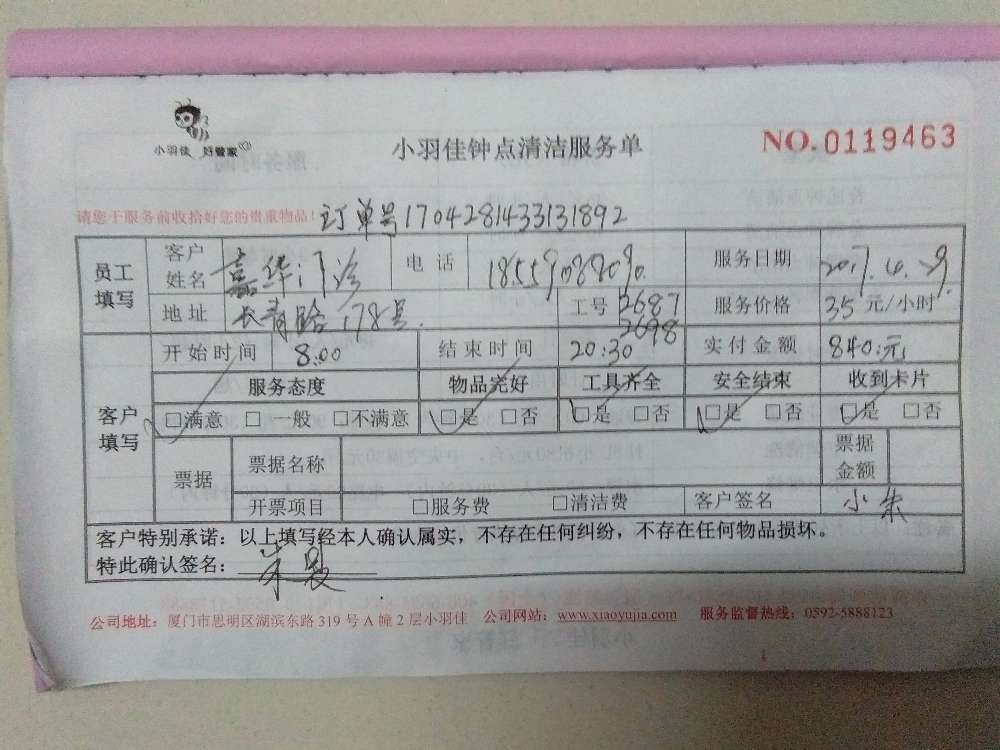 小羽佳 好管家
小羽佳钟点清洁服务单
NO.0119463
请您于服务前收拾好您的贵重物品!
订单号1704281433131892
员工填写 客户姓名 嘉华门诊 电话 服务日期 2017.4.29
地址 长青路178号. 工号 2687 2698 服务价格 35元/小时
开始时间 8:00 结束时间 20:30 实付金额 840.元
客户填写 服务态度 物品完好 工具齐全 安全结束 收到卡片
□满意 □一般 □不满意 □是 □否 □是 □否 □是 □否 □是 □否
票据 票据名称 票据金额
开票项目 □服务费 □清洁费 客户签名 小朱
客户特别承诺：以上填写经本人确认属实，不存在任何纠纷，不存在任何物品损坏。
特此确认签名：
公司地址：厦门市思明区湖滨东路319号A幢2层小羽佳 公司网站：www.xiaoyujia.com 服务监督热线：0592-5888123